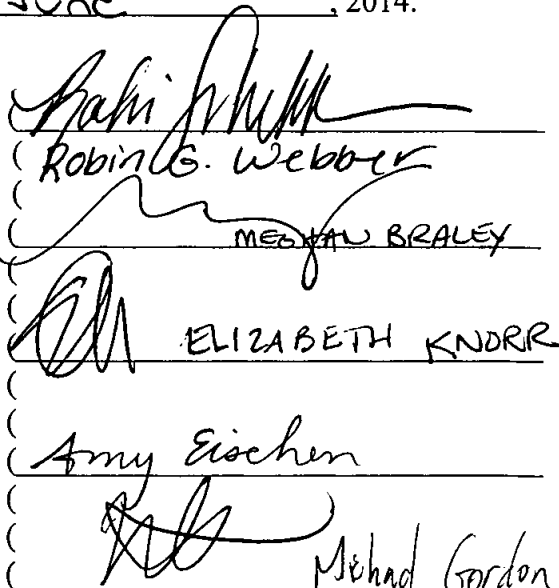 June, 2014.
Robin G. Webber
MEGHAN BRALEY
ELIZABETH KNORR
Amy Eischen
Michael Gordon